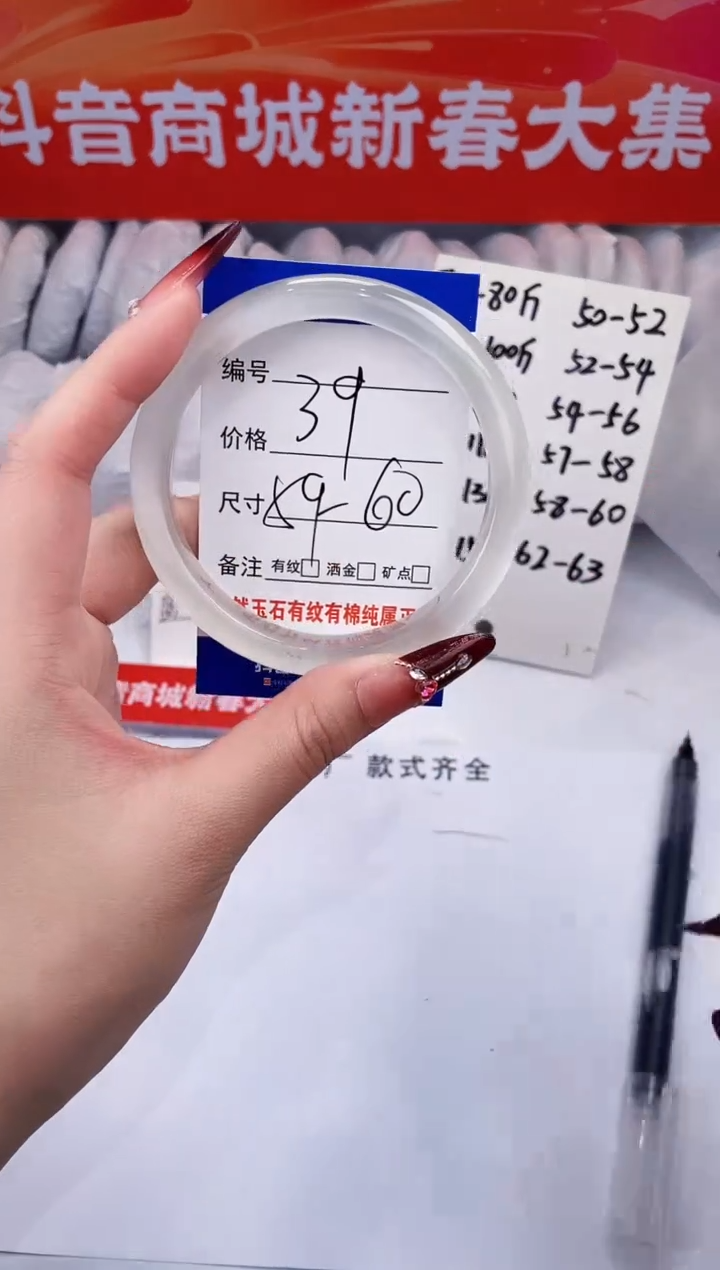 抖音商城新春大集
-80斤 50-52
100斤 52-54
54-56
57-58
58-60
62-63
编号
39
价格
尺寸 59-60
备注 有纹 洒金 矿点
然玉石有纹有棉纯属正
音商城新春大
款式齐全